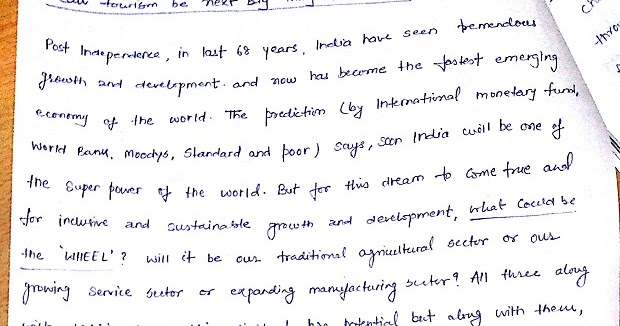 tourism be next big
Post Independence, in last 68 years, India have seen tremendous
growth and development. and now has become the fastest emerging
economy of the world. The prediction (by International monetary fund,
World Bank, Moodys, Standard and poor) says, soon India will be one of
the super power of the world. But for this dream to come true and
for inclusive and sustainable growth and development, what could be
the 'WHEEL'? will it be our traditional agricultural sector or our
growing service sector or expanding manufacturing sector? All three along
potential but along with them,